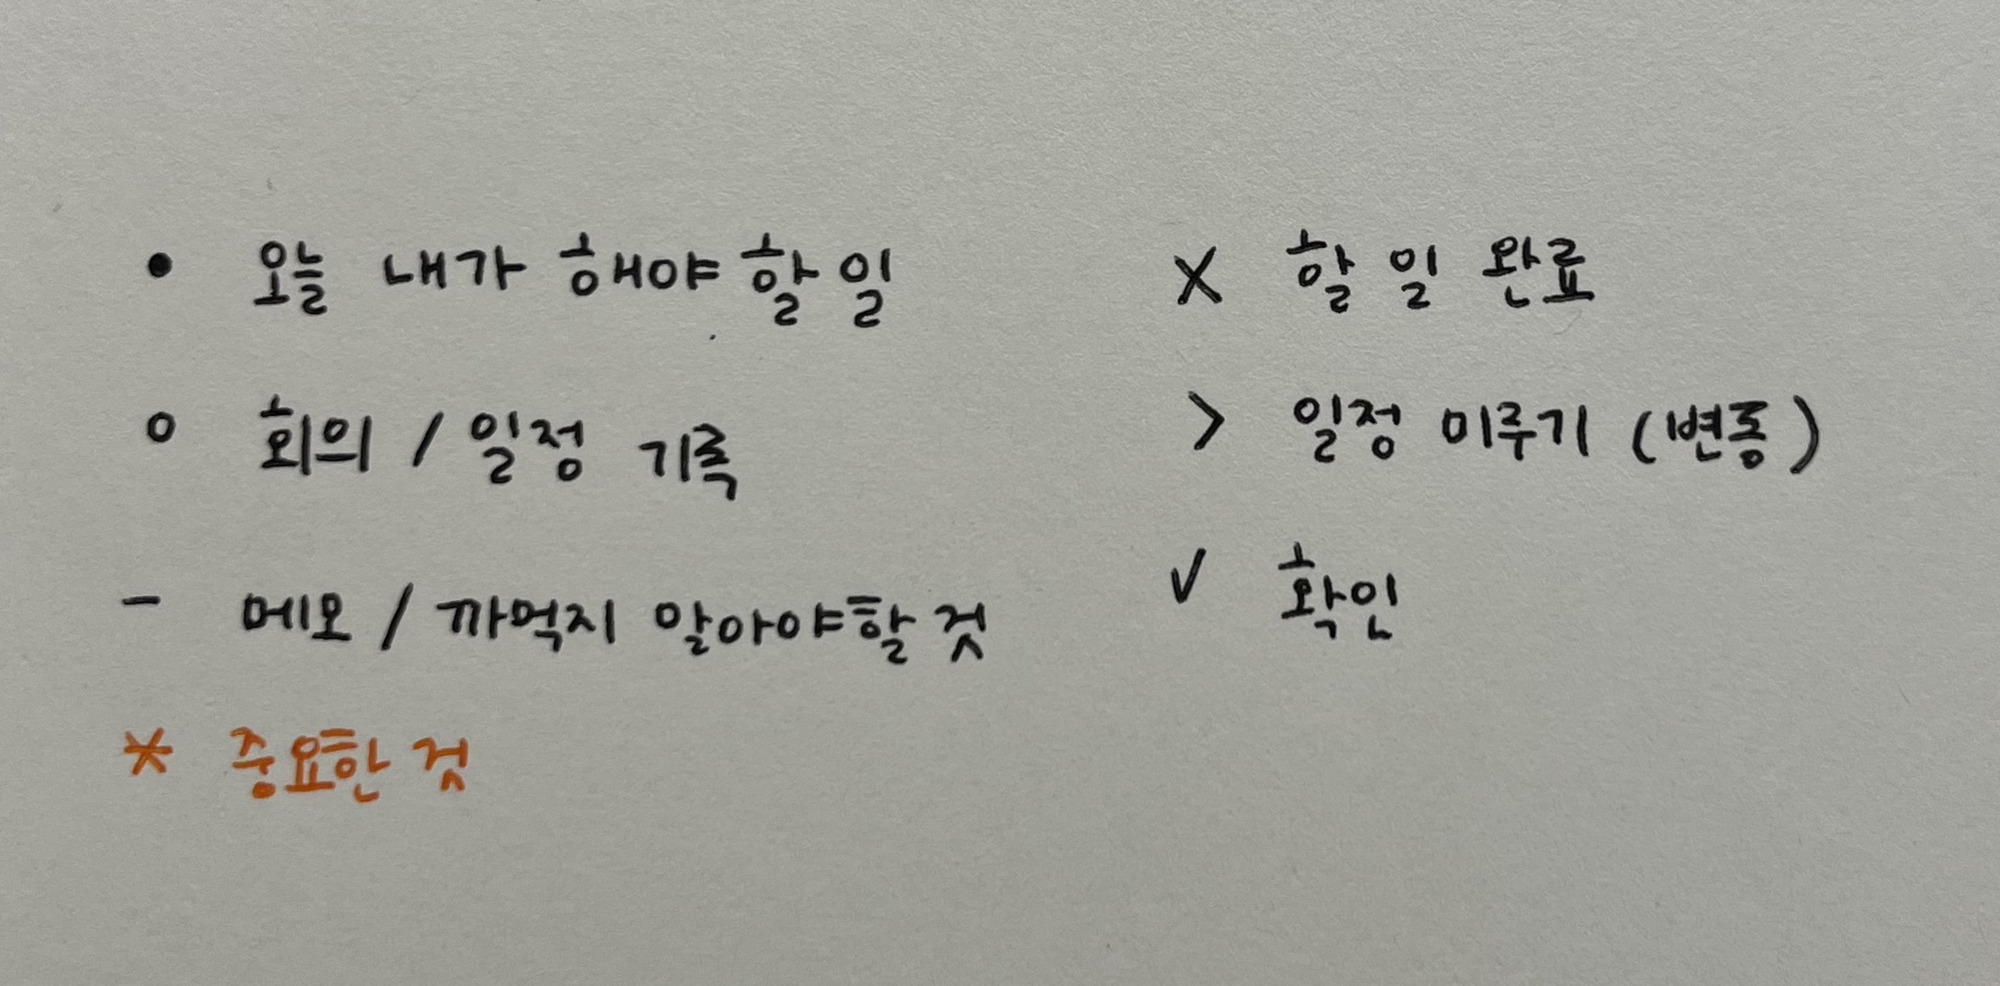 • 오늘 내가 해야 할 일
o 회의 / 일정 기록
- 메모 / 까먹지 말아야할 것
* 중요한 것
X 할 일 완료
> 일정 미루기 (변동)
✓ 확인